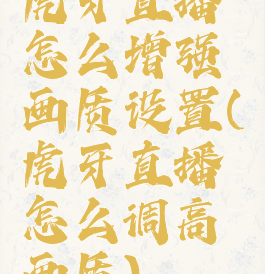 虎牙直播
怎么增强
画质设置(
虎牙直播
怎么调高
画质)